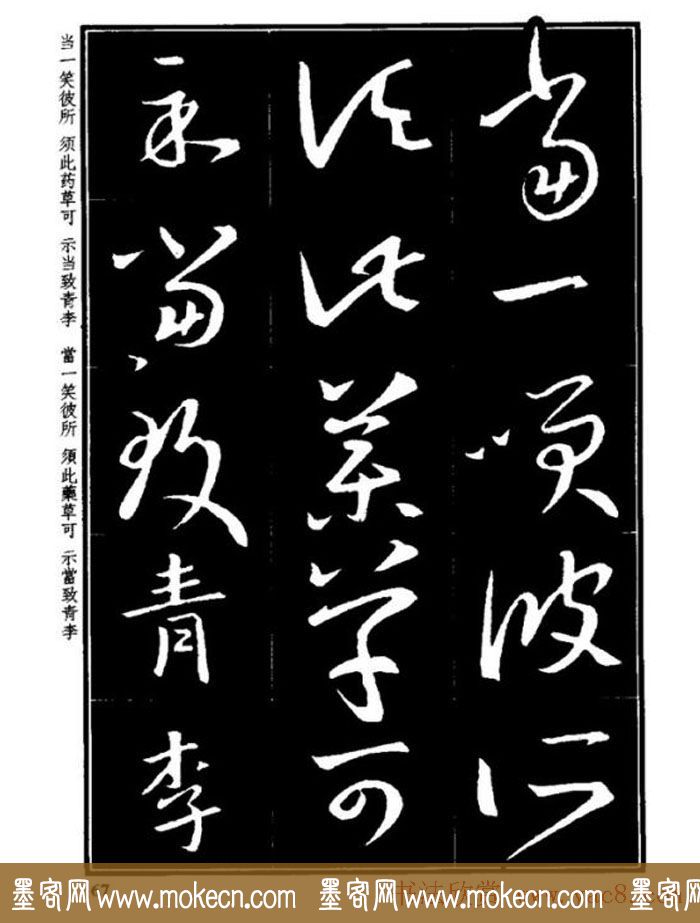 當一笑彼所
須此藥草可
示當致青李
当一笑彼所 须此药草可 示当致青李 當一笑彼所 須此藥草可 示當致青李
67
墨客网 www.mokecn.com 墨客网 www.mokecn.com 墨客网 www.mokecn.com 墨客网
书法欣赏